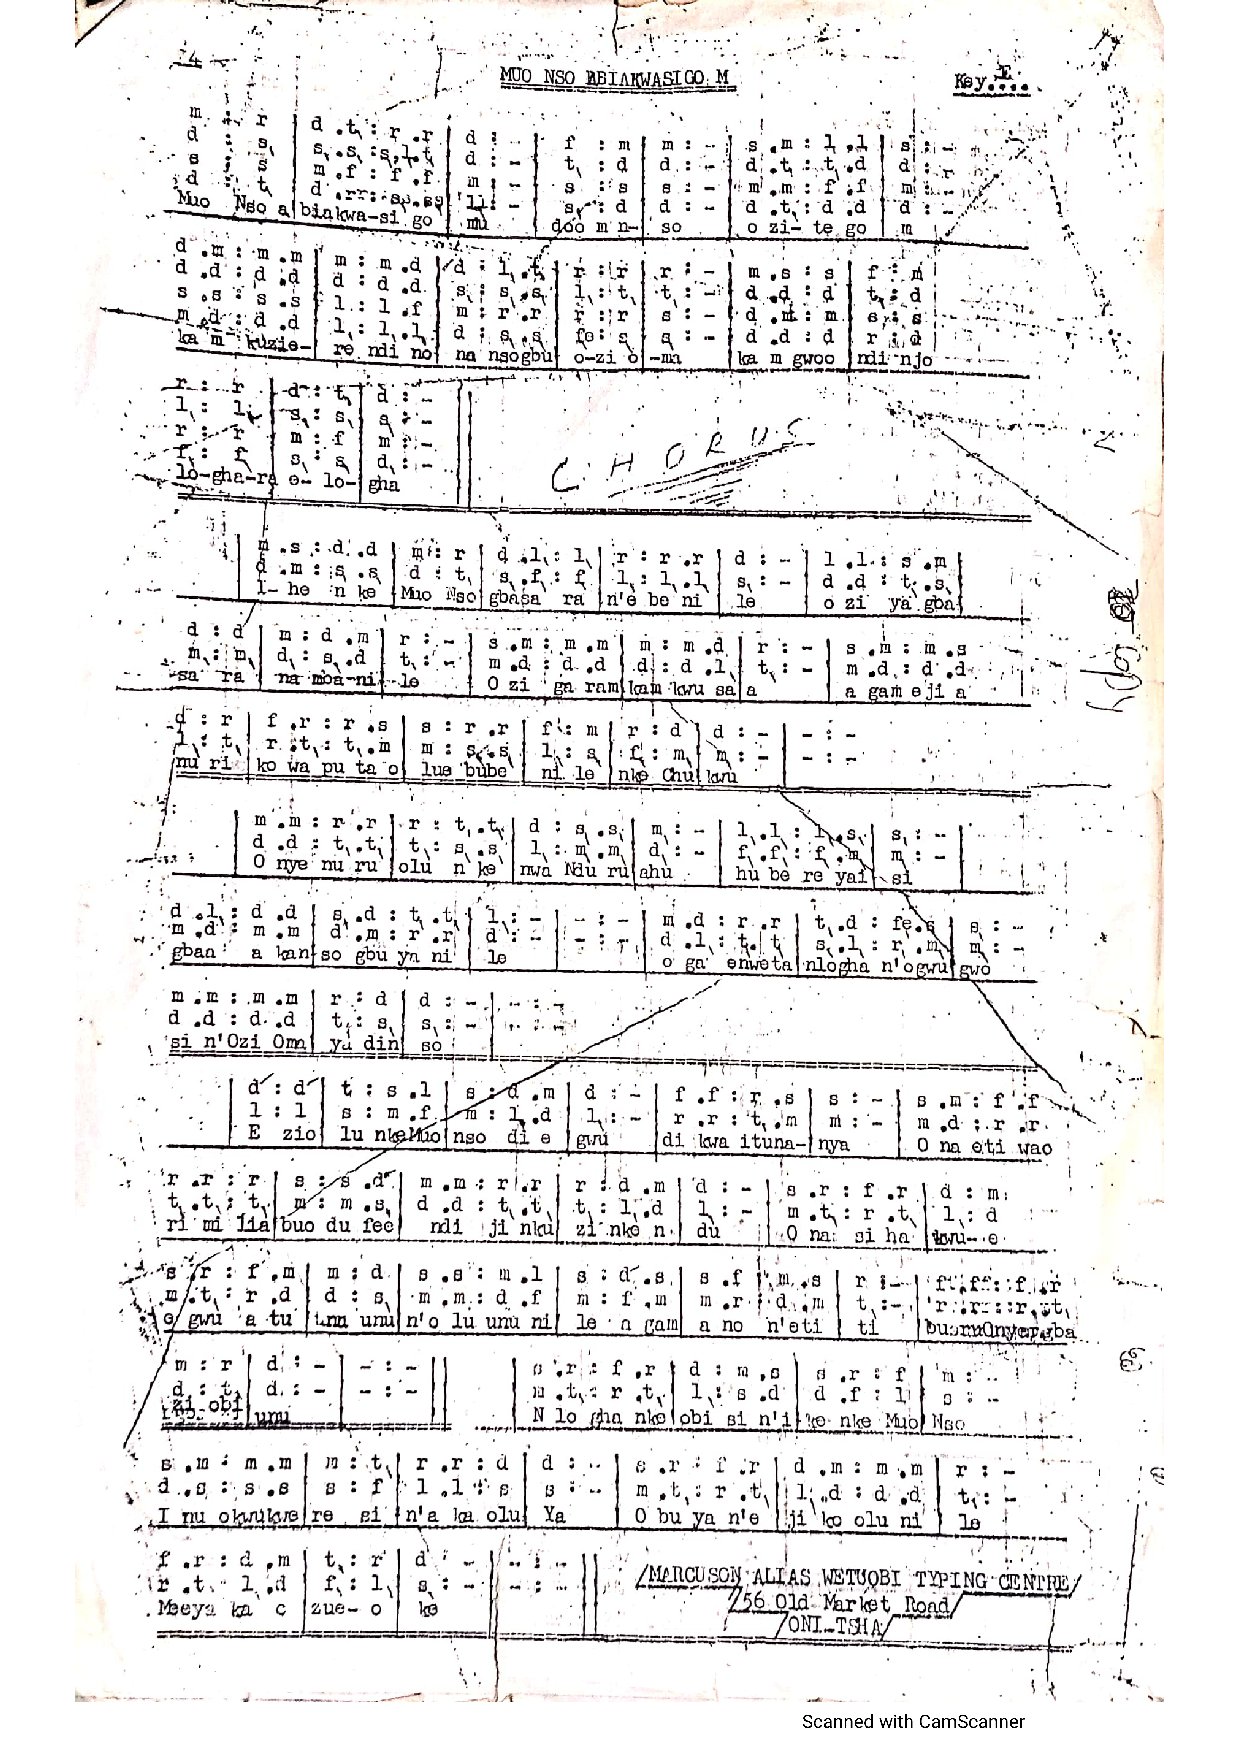 4
MUO NSO ABIAKWASIGO M
Key E....
m : r | d .t, : r .r | d : - | f : m | m : - | s .m : l .l | s : -
d : s, | s, .s, : s, l, .t, | d : - | t, : d | d : - | d .t, : t, .d | d : -
s : s | m .f : f .f | m : - | s : s | s : - | m .m : f .f | m : -
Muo Nso a biakwa-si go mu doo m n- so o zi- te go m
d .m : m .m | m : m .d | d : l, .t, | r : r | r : - | m .s : s | f : m
d .d : d .d | d : d .d | s, : s, .s, | l, : t, | t, : - | d .d : d | t, : d
s .s : s .s | l : l .f | m : r .r | r : r | s : - | d .m : m | s : s
m .d : d .d | l, : l, .l, | d : s, .s, | fe : s, | s, : - | d .d : d | r : d
ka m kuzie- re ndi no na nsogbu o-zi o -ma ka m gwoo ndi njo
r : r | d : t, | d : -
l, : l, | s, : s, | s, : -
r : r | m : f | m : -
f, : f, | s, : s, | d, : -
lo-gha-ra e- lo- gha
CHORUS
m .s : d .d | m : r | d .l, : l, | r : r .r | d : - | l .l : s .m
d .m : s, .s, | d : t, | s, .f, : f, | l, : l, .l, | s, : - | d .d : t, .s,
I- he n ke Muo Nso gbasa ra n'e be ni le o zi ya gba
d : d | m : d .m | r : - | s .m : m .m | m : m .d | r : - | s .m : m .s
m, : m, | d, : s, .d | t, : - | m .d : d .d | d : d .l, | t, : - | m .d : d .d
sa ra na mba-ni le O zi ga ram kam kwu sa a a gam eji a
d : r | f .r : r .s | s : r .r | f : m | r : d | d : - | - : -
l, : t, | r .t, : t, .m | m : s, .s, | l, : s, | f, : m, | m, : - | - : -
nu ri ko wa pu ta o lue bube ni le nke Chu kwu
m .m : r .r | r : t, .t, | d : s, .s, | m, : - | l, .l, : l, .s, | s, : -
d .d : t, .t, | t, : s, .s, | l, : m, .m, | d, : - | f, .f, : f, .m, | m, : -
O nye nu ru olu n ke nwa Ndu ru ahu hu be re yai si
d .l, : d .d | s, .d : t, .t, | l, : - | - : - | m .d : r .r | t, .d : fe, .s, | s, : -
m, .d, : m, .m, | d, .m, : r, .r, | d, : - | - : - | d .l, : t, .t, | s, .l, : r, .m, | m, : -
gban a kan so gbu ya ni le o ga enweta nlogha n'ogwu gwo
m .m : m .m | r : d | d : - | - : -
d .d : d .d | t, : s, | s, : - | - : -
si n'Ozi Oma ya din so
d' : d' | t : s .l | s : d .m | d : - | f .f : r .s | s : - | s .m : f .f
l : l | s : m .f | m : l, .d | l, : - | r .r : t, .m | m : - | m .d : r .r
E zio lu nkeMuo nso di e gwu di kwa ituna- nya O na eti wao
r .r : r | s : s .d' | m .m : r .r | r : d .m | d : - | s .r : f .r | d : m
t, .t, : t, | m : m .s, | d .d : t, .t, | t, : l, .d | l, : - | m .t, : r .t, | l, : d
ri mi lia buo du fee ndi ji nku zi nke n du O na si ha kwu- e
s .r : f .m | m : d | s .s : m .l | s : d' .s | s .f : m .s | r : - | f .f : f .r
m .t, : r .d | d : s, | m .m : d .f | m : f .m | m .r : d .m | t, : - | r .r : r .t,
e gwu a tu unu n'o lu unu ni le a gam a no n'eti ti
m : r | d : - | - : -
d : t, | d : - | - : -
zi obi unu
s .r : f .r | d : m .s | s .r : f | m : -
m .t, : r .t, | l, : s .d | d .f : l | s : -
N lo gha nke obi si n'i ke nke Muo Nso
s .m : m .m | m : t, | r .r : d | d : - | s .r : f .r | d .m : m .m | r : -
d .s : s .s | s : f | l .l : s | s : - | m .t, : r .t, | l, .d : d .d | t, : -
I nu okwukwe re si n'a ka olu Ya O bu ya n'e ji ko olu ni le
f .r : d .m | t, : r | d : - | - : -
r .t, : l, .d | f, : l, | s, : - | - : -
Meeya ka c zue- o ke
/MARCUSON ALIAS WETUOBI TYPING CENTRE/
/56 Old Market Road/
/ONI-TSHA/
Scanned with CamScanner